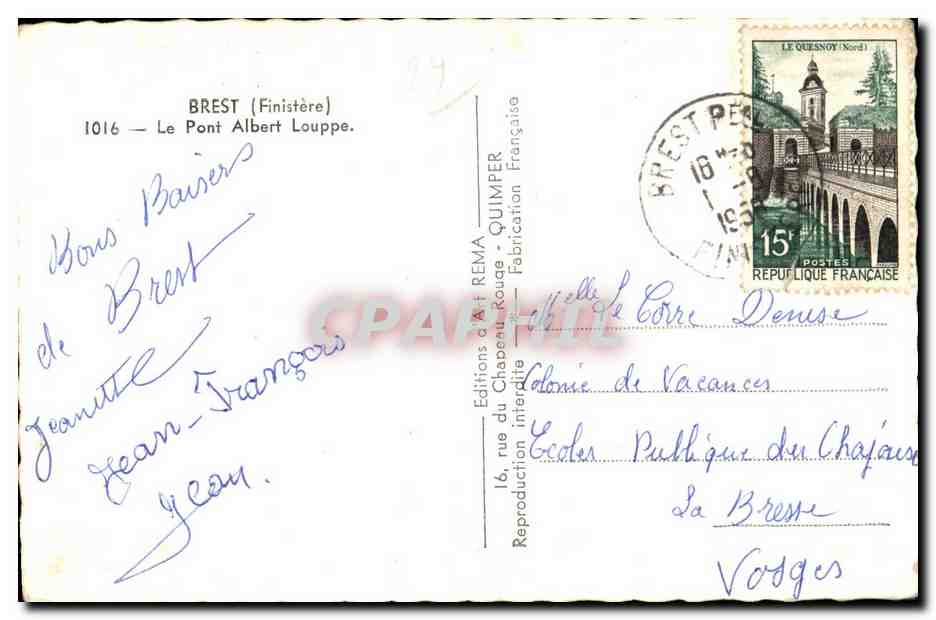 BREST (Finistère)
1016 — Le Pont Albert Louppe.
Bons Baisers
de Brest
Jeanette
Jean-François
Jean.
Editions d'Art REMA
16, rue du Chapeau Rouge - QUIMPER
Reproduction interdite — Fabrication Française
LE QUESNOY (Nord)
15F
POSTES
REPUBLIQUE FRANÇAISE
BREST
18 H
1
FINI
Melle Le Corre Denise
Colonie de Vacances
Ecoles Publique des
La Bresse
Vosges
CPAPHIL